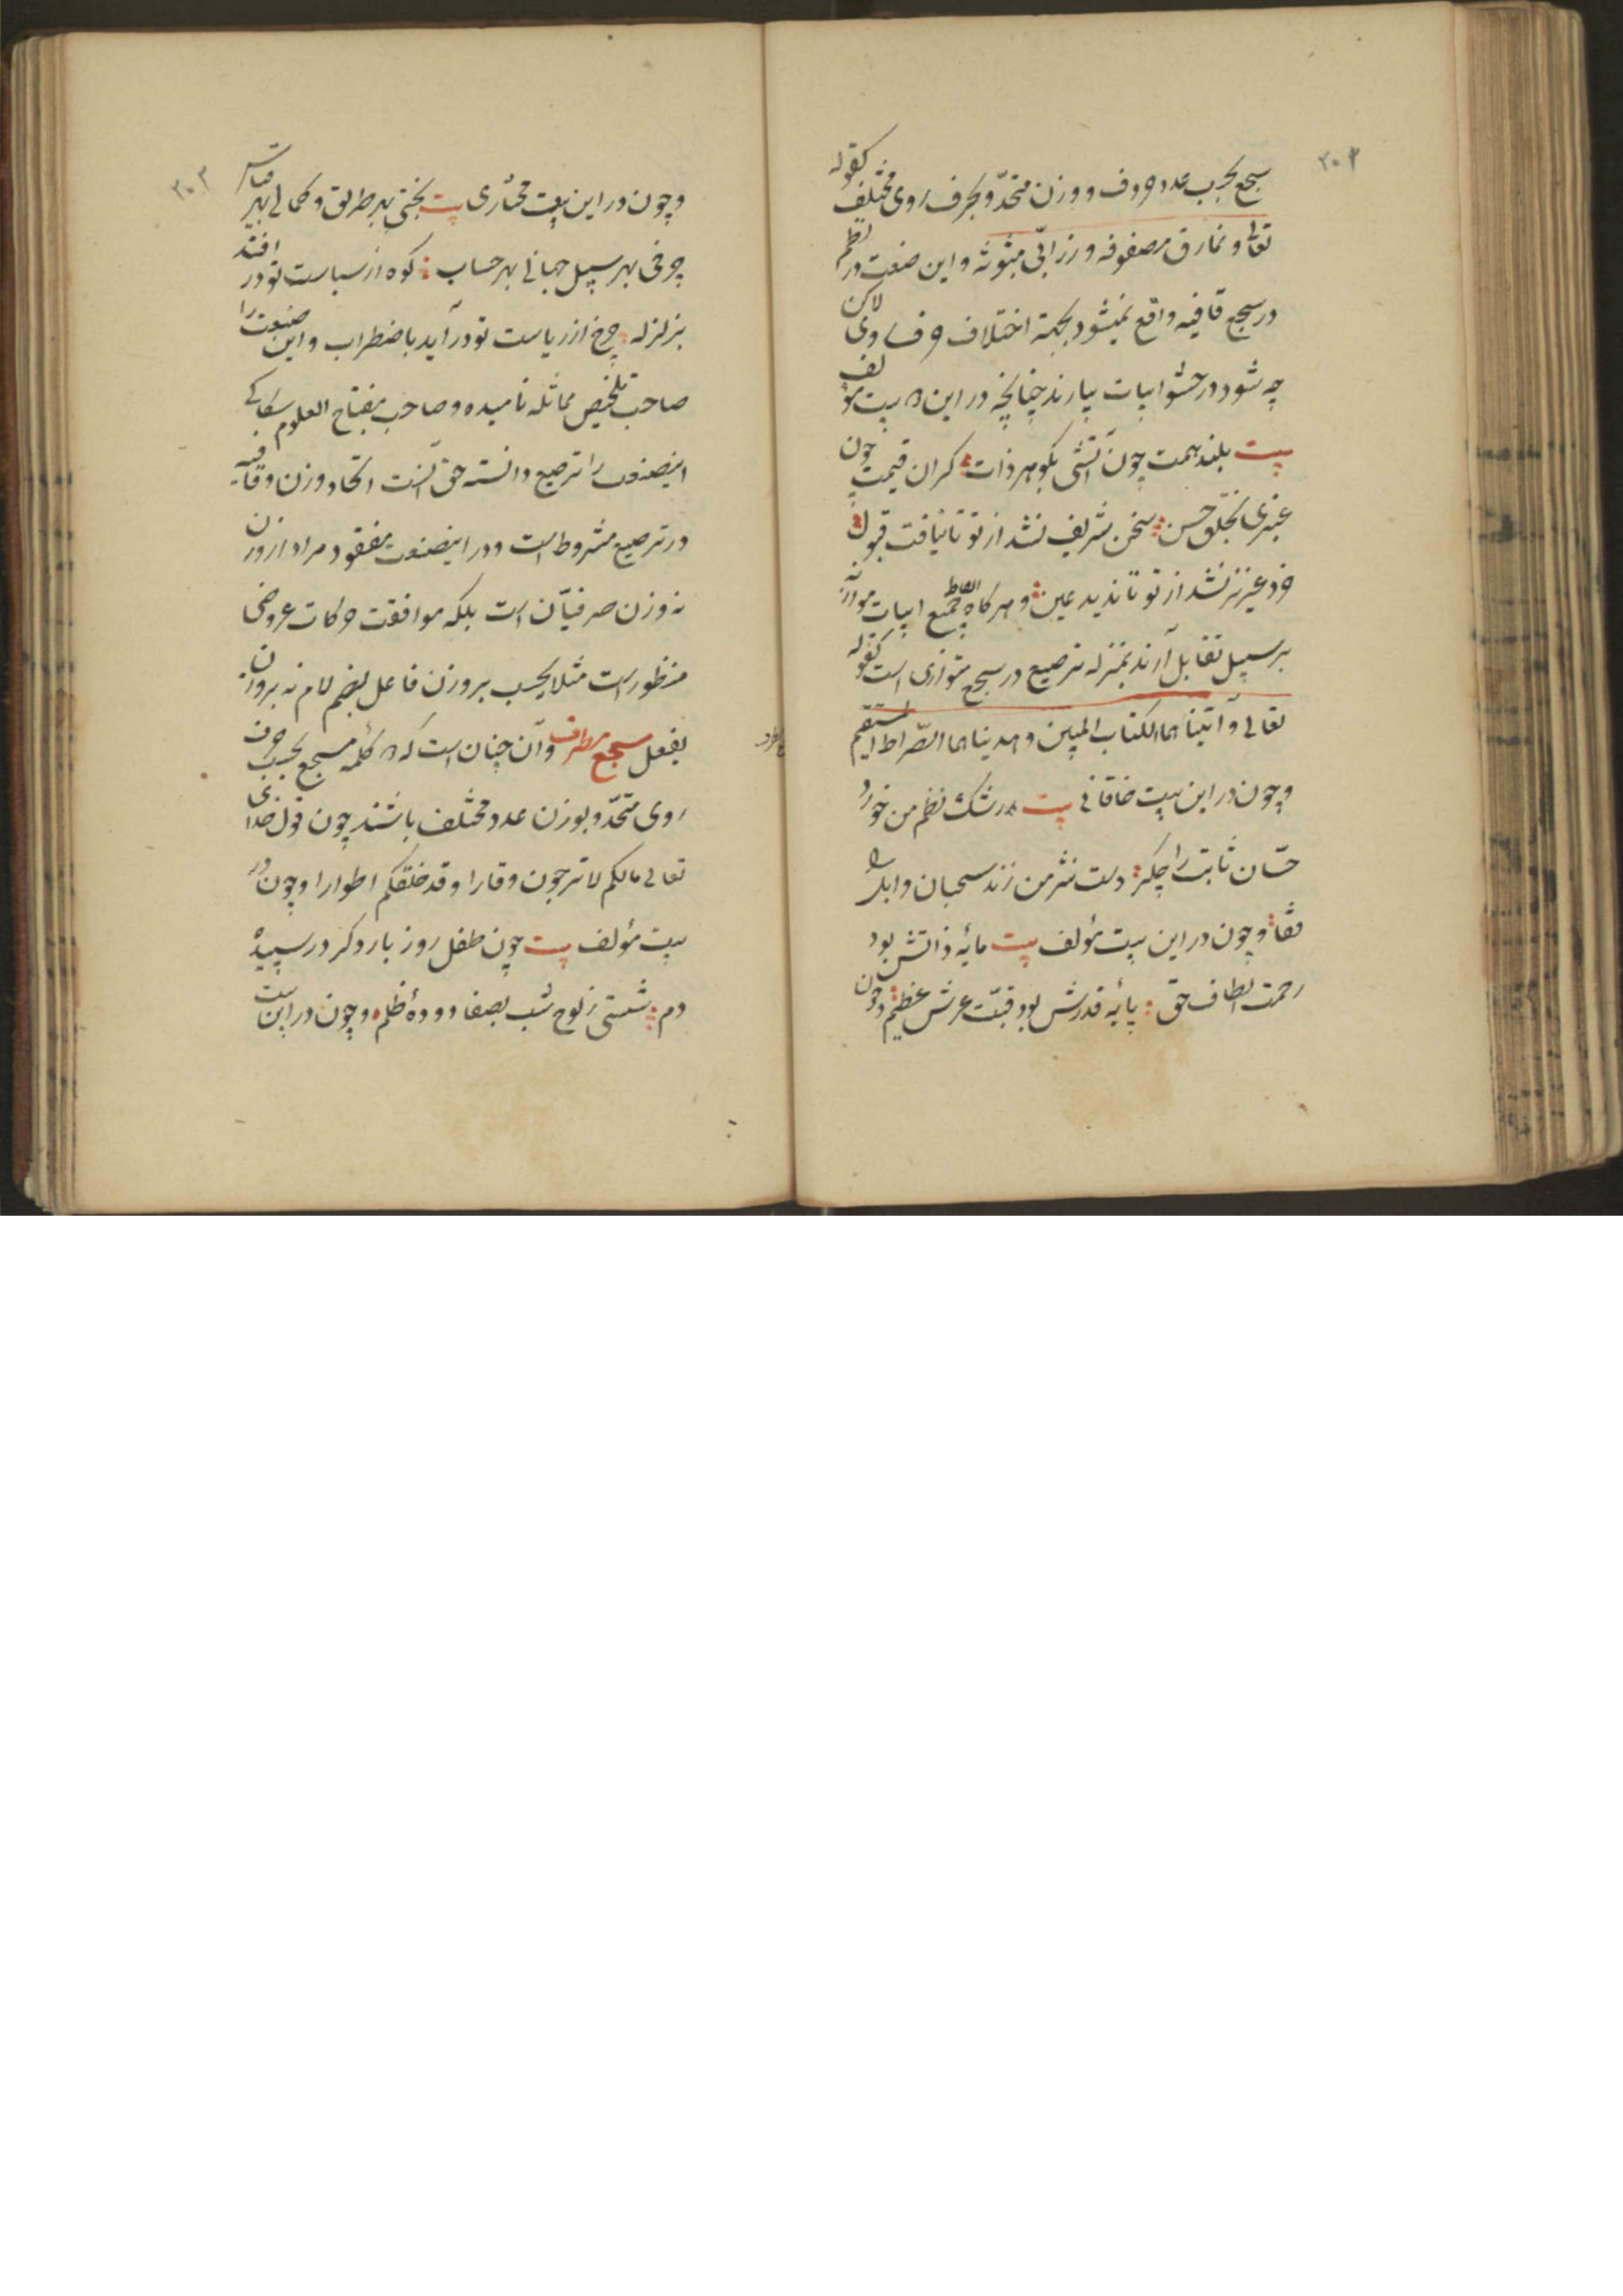 سجع بحرب عدد حروف و وزن متحدّ و بحرف روی مختلف کقوله
تعالی و نمارق مصفوفه و زرابّی مبثوثه و این صنعت در نظم
در سجع قافیه واقع نمیشود بجهة اختلاف حرف روی لاکن
چه شود در حشو ابیات بیارند چنانچه در این بیت مؤلف
بیت بلند همت چون آتشی بگوهر ذات کران قیمت چون
عنبری بخلق حسن سخن شریف نشد از تو تا نیافت قبول
خرد عزیز نشد از تو تا ندید عین و هر کاه جمیع ابیات موازنه
بر سبیل تقابل آرند بمنزله ترصیع در سجع متوازی است کقوله
تعالی و آتیناهما الکتاب المبین و هدیناهما الصّراط المستقیم
و چون در این بیت خاقانی بیت رشک نظم من خورد
حسّان ثابت را جکر دست نثر من زند سحبان وایل را
قفا و چون در این بیت مؤلف بیت مایهٔ ذاتش بود
رحمت الطاف حقّ پایهٔ قدرش بود قبّت عرش عظیم و چون
۳۰۳
و چون در این بیت مختاری بیت بختی بهر طریق و کمالی بهر قیاس
چرخی بهر سبیل جهانی بهر حساب کوه از سیاست تو در افتد
بزلزله چرخ از ریاست تو در آید باضطراب و این صنعت را
صاحب تلخیص مماثله نامیده و صاحب مفتاح العلوم سکاکی
اینصنعت را ترصیع دانسته حق آنست اتحاد وزن و قافیه
در ترصیع مشروط است و در اینصنعت مفقود مراد از وزن
نه وزن صرفیّان است بلکه موافقت حرکات عروضی
منظور است مثلا یحسب بر وزن فاعل بضم لام نه بر وزن
یفعل سجع مطرف و آن چنان است که کلمه مسجع بحرب حرف
روی متحدّ و بوزن عدد مختلف باشند چون قول خدای
تعالی مالکم لا ترجون وقارا و قد خلقکم اطوارا و چون در
بیت مؤلف بیت چون طفل روز بار دکر در سپیده
دم شستی ز لوح شب بصفا دوده ظلم و چون در این بیت